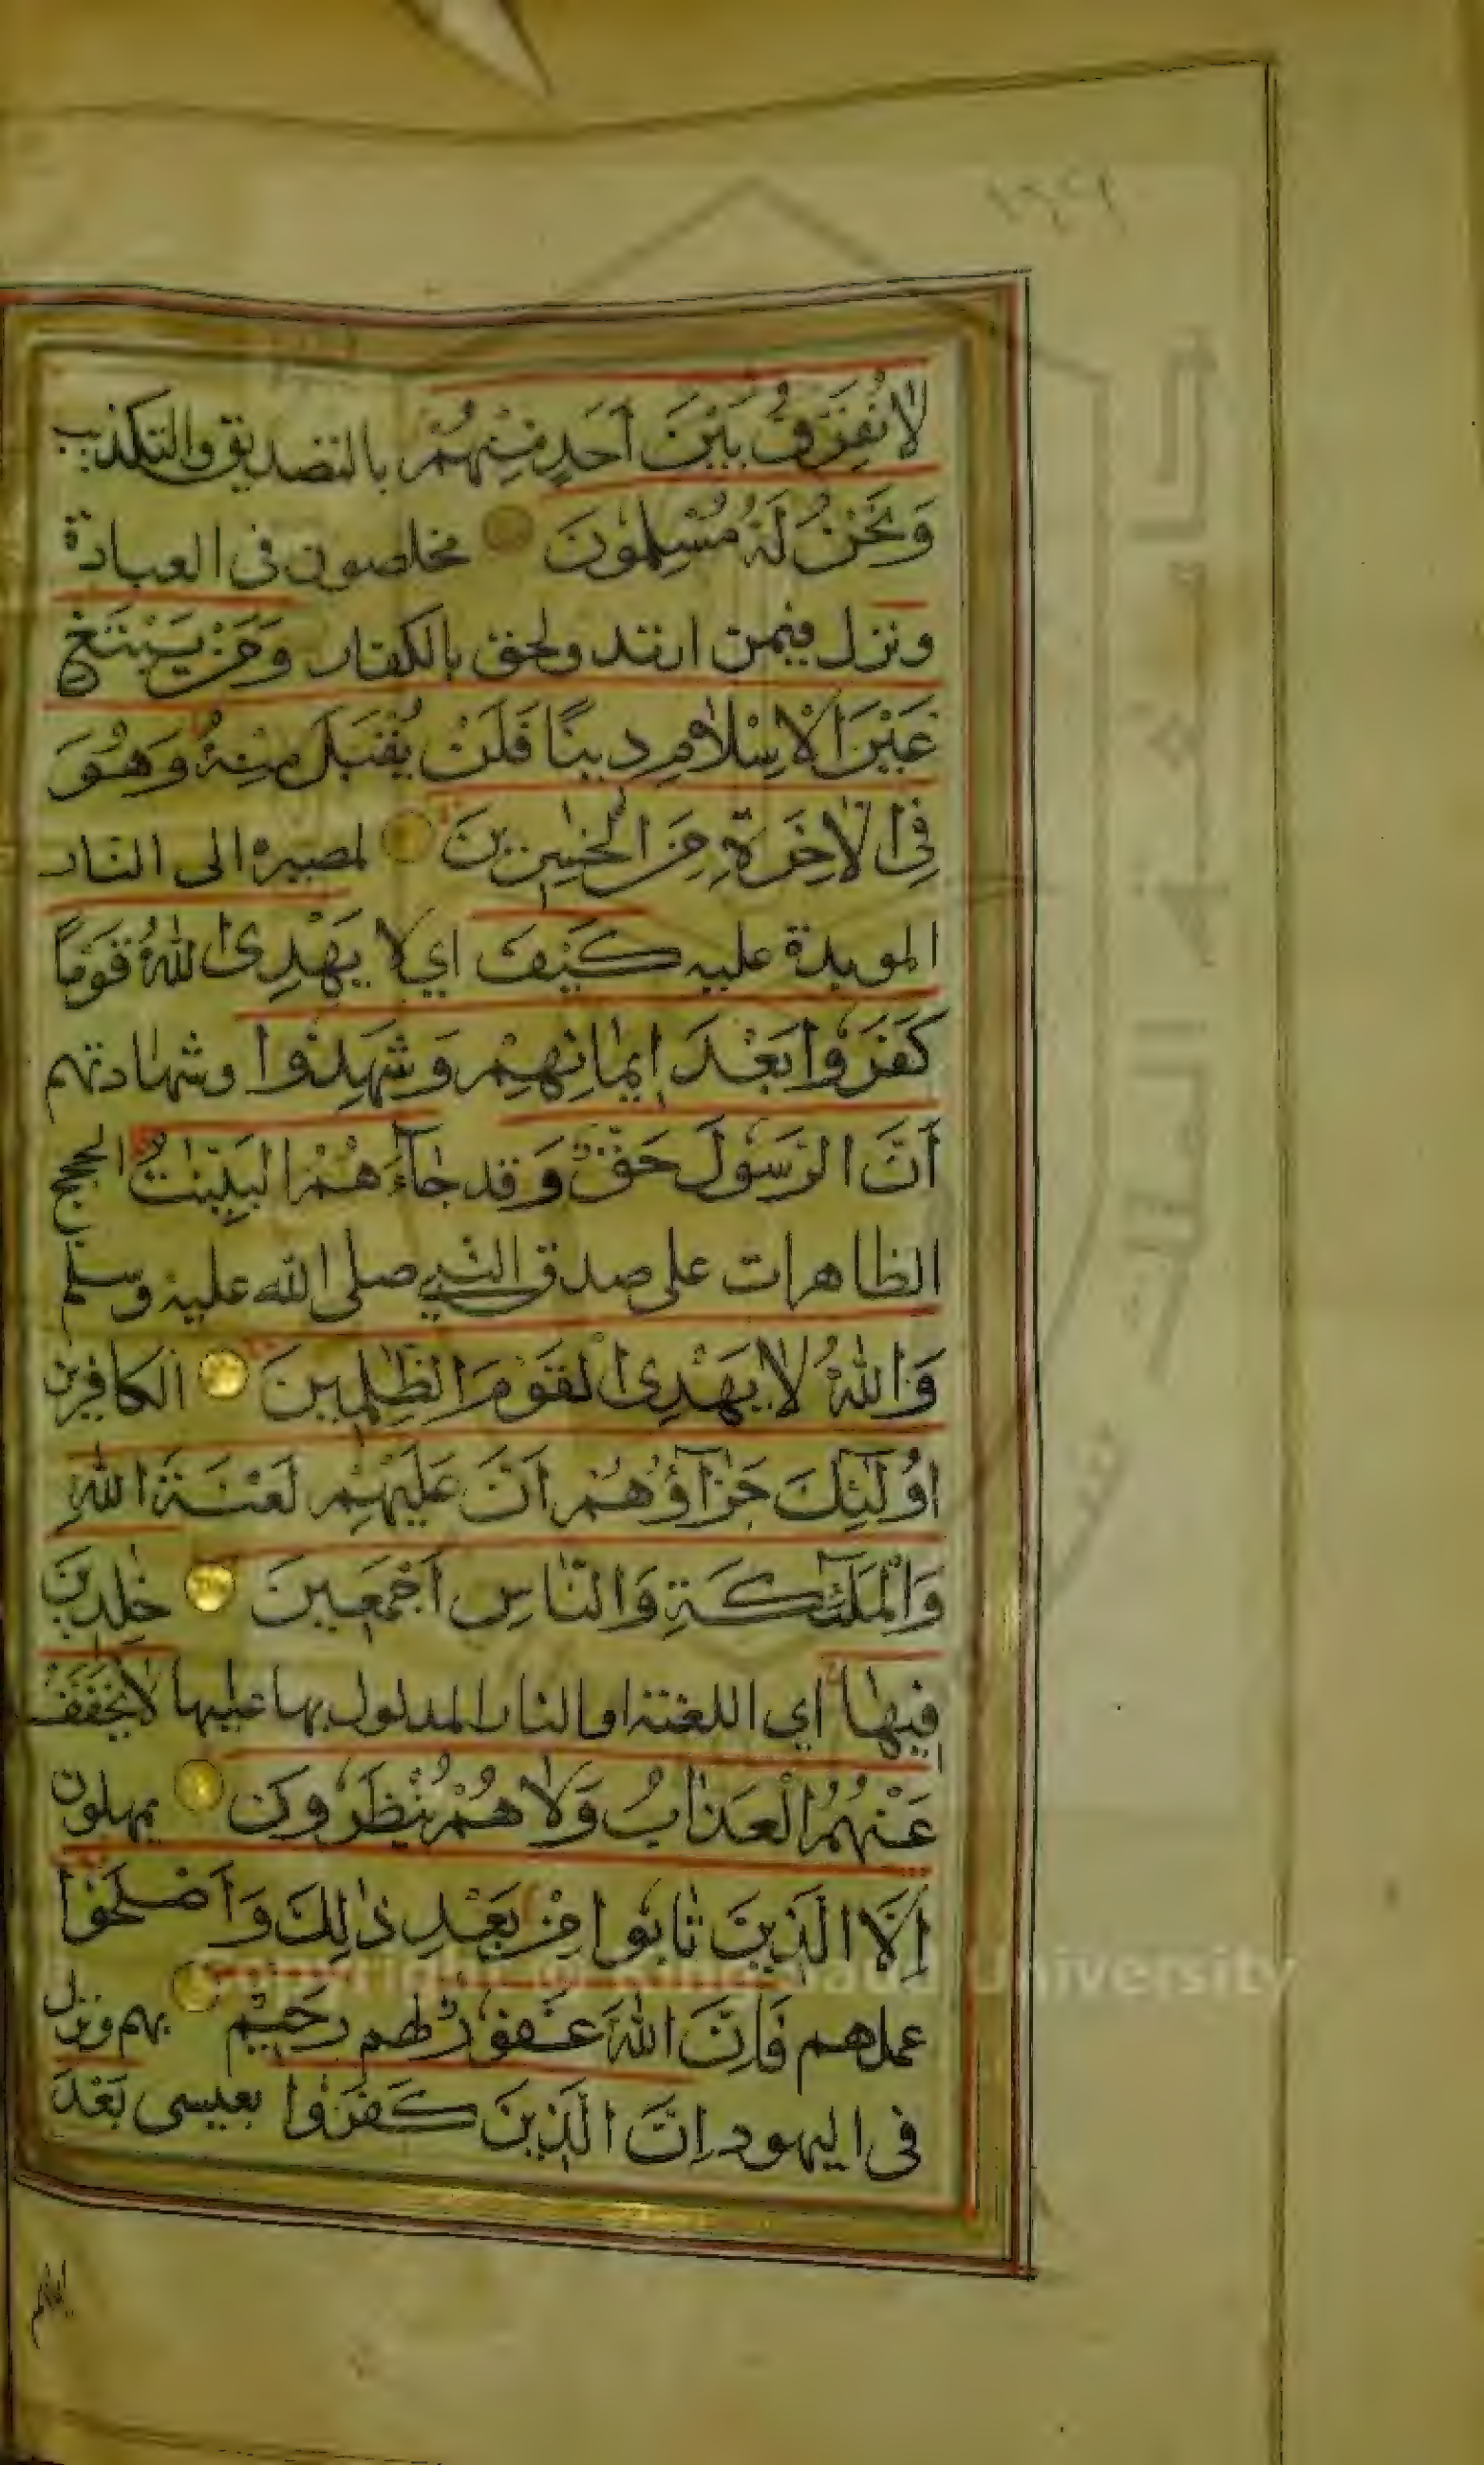 لَا نُفَرِّقُ بَيْنَ أَحَدٍ مِنْهُمْ بالتصديق والتكذيب
وَنَحْنُ لَهُ مُسْلِمُونَ مخلصون في العبادة
ونزل فيمن ارتد ولحق بالكفار وَمَنْ يَبْتَغِ
غَيْرَ الْإِسْلَامِ دِينًا فَلَنْ يُقْبَلَ مِنْهُ وَهُوَ
فِي الْآخِرَةِ مِنَ الْخٰسِرِينَ لمصيره الى النار
الموبدة عليه كَيْفَ اي لا يَهْدِي اللّٰهُ قَوْمًا
كَفَرُوا بَعْدَ إِيمَانِهِمْ وَشَهِدُوا وشهادتهم
أَنَّ الرَّسُولَ حَقٌّ وَقد جَاءَهُمُ الْبَيِّنٰتُ الحجج
الظاهرات على صدق النبي صلى الله عليه وسلم
وَاللّٰهُ لَا يَهْدِي الْقَوْمَ الظّٰلِمِينَ الكافرين
أُولٰئِكَ جَزَآؤُهُمْ أَنَّ عَلَيْهِمْ لَعْنَةَ اللّٰهِ
وَالْمَلٰئِكَةِ وَالنَّاسِ أَجْمَعِينَ خٰلِدِينَ
فِيهَا اي اللعنة او النار المدلول بها عليها لَا يُخَفَّفُ
عَنْهُمُ الْعَذَابُ وَلَا هُمْ يُنْظَرُونَ يمهلون
إِلَّا الَّذِينَ تَابُوا مِنْ بَعْدِ ذٰلِكَ وَأَصْلَحُوا
عملهم فَإِنَّ اللّٰهَ غَفُورٌ لهم رَحِيمٌ بهم ونزل
في اليهود إِنَّ الَّذِينَ كَفَرُوا بعيسى بَعْدَ
Copyright © King Saud University